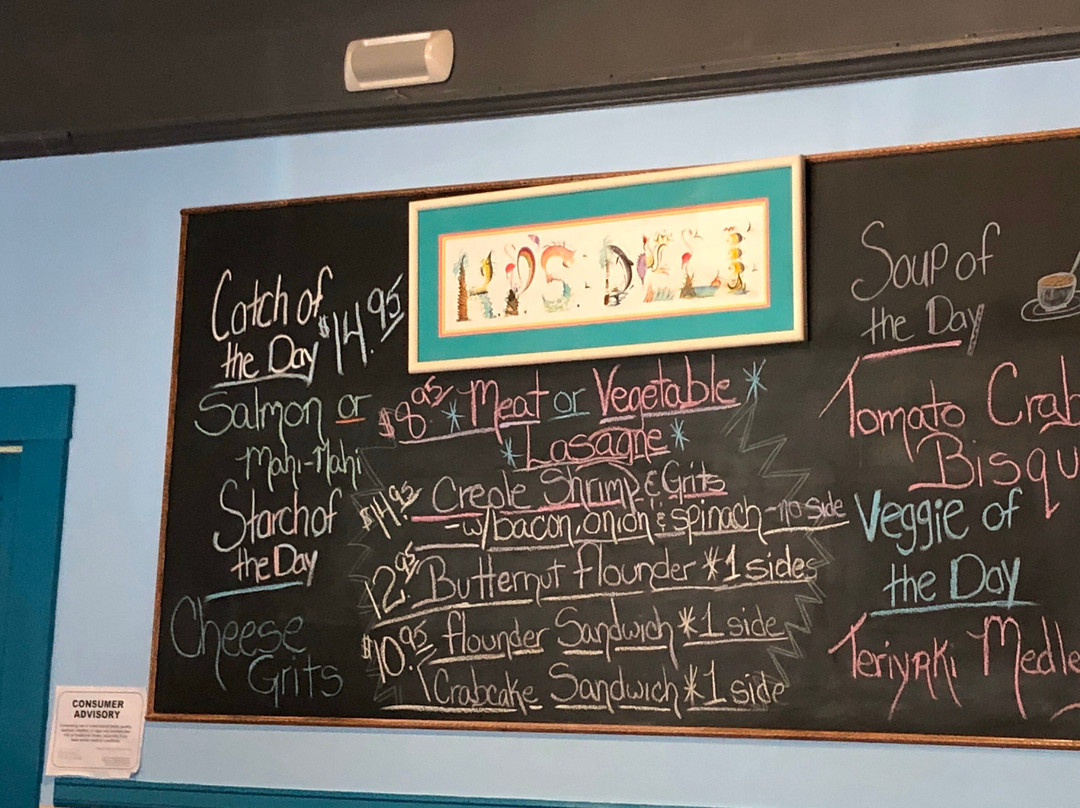 Catch of
the Day $14.95
Salmon or
Mahi-Mahi
Starch of
the Day
Cheese
Grits
H.P.'S. DELI
$8.95 * Meat or Vegetable *
* Lasagne *
$14.95 Creole Shrimp & Grits
-w/bacon, onion & spinach -no side
12.95 Butternut flounder *1 sides
$10.95 flounder Sandwich *1 side
Crabcake Sandwich *1 side
Soup of
the Day
Tomato Crab
Bisqu
Veggie of
the Day
Teriyaki Medle
CONSUMER
ADVISORY